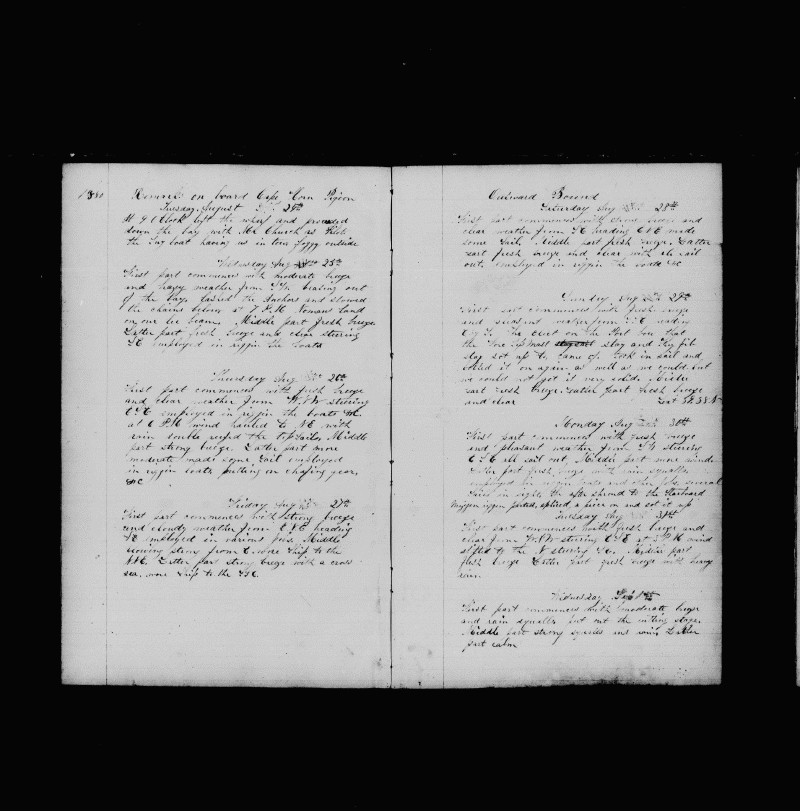 1880
Remarks on board Cape Horn Pigeon
Tuesday, August 24th
At 9 O Clock left the wharf and proceeded
down the bay with Mr Church as Pilot
the Tug boat having us in tow foggy outside
Wednesday Aug 25th
First part commences with moderate breeze
and heavy weather from beating out
of the bay lashed the Anchors and stowed
the chains below at 7 P.M Nomans Land
on our lee beam. Middle part fresh breeze
Latter part fresh breeze and clear steering
SE employed in riggin the boats
Thursday Aug 26th
First part commences with fresh breeze
and clear weather from steering
ESE employed in riggin the boats &c
at 6 P.M wind hauled to NE with
rain double reefed the topsailes Middle
part strong breeze. Latter part more
moderate made some sail employed
in riggin boats putting on chafing gear
&c
Friday Aug 27th
First part commences with strong breeze
and cloudy weather from ENE heading
SE employed in various jobs. Middle
strong from E. wore ship to the
NNE. Latter part strong breeze with a cross
sea. wore ship to the SSE.
Outward Bound
Saturday Aug 28th
First part commences with strong breeze and
clear weather from heading ENE made
some sail. Middle part fresh breeze. Latter
part fresh breeze and clear with all sail
out. employed in riggin the boats &c
Sunday Aug 29th
First part commences with fresh breeze
and pleasant weather from heading
the on the that
the Fore topmast stay and Fly jib
stay set up to came off. Took in sail and
it on again as well as we could, but
we could not get it very solid. Middle
part fresh breeze. Latter part fresh breeze
and clear Lat 38.38 N
Monday Aug 30th
First part commences with fresh breeze
and pleasant weather from steering
all sail out. Middle part more wind
Latter part fresh breeze with rain squalls
employed in riggin boats and other jobs several
in sight. the after shroud to the Starboard
Mizzen riggin parted, spliced a piece on and set it up
Tuesday Aug 31st
First part commences with fresh breeze and
clear from steering ESE at 5 P.M wind
shifted to the N steering SE. Middle part
fresh breeze Latter part fresh breeze with heavy
rain.
Wednesday Sep 1st
First part commences with moderate breeze
and rain squalls. put out the cutting stage.
Middle part strong squalls and rain, Latter
part calm